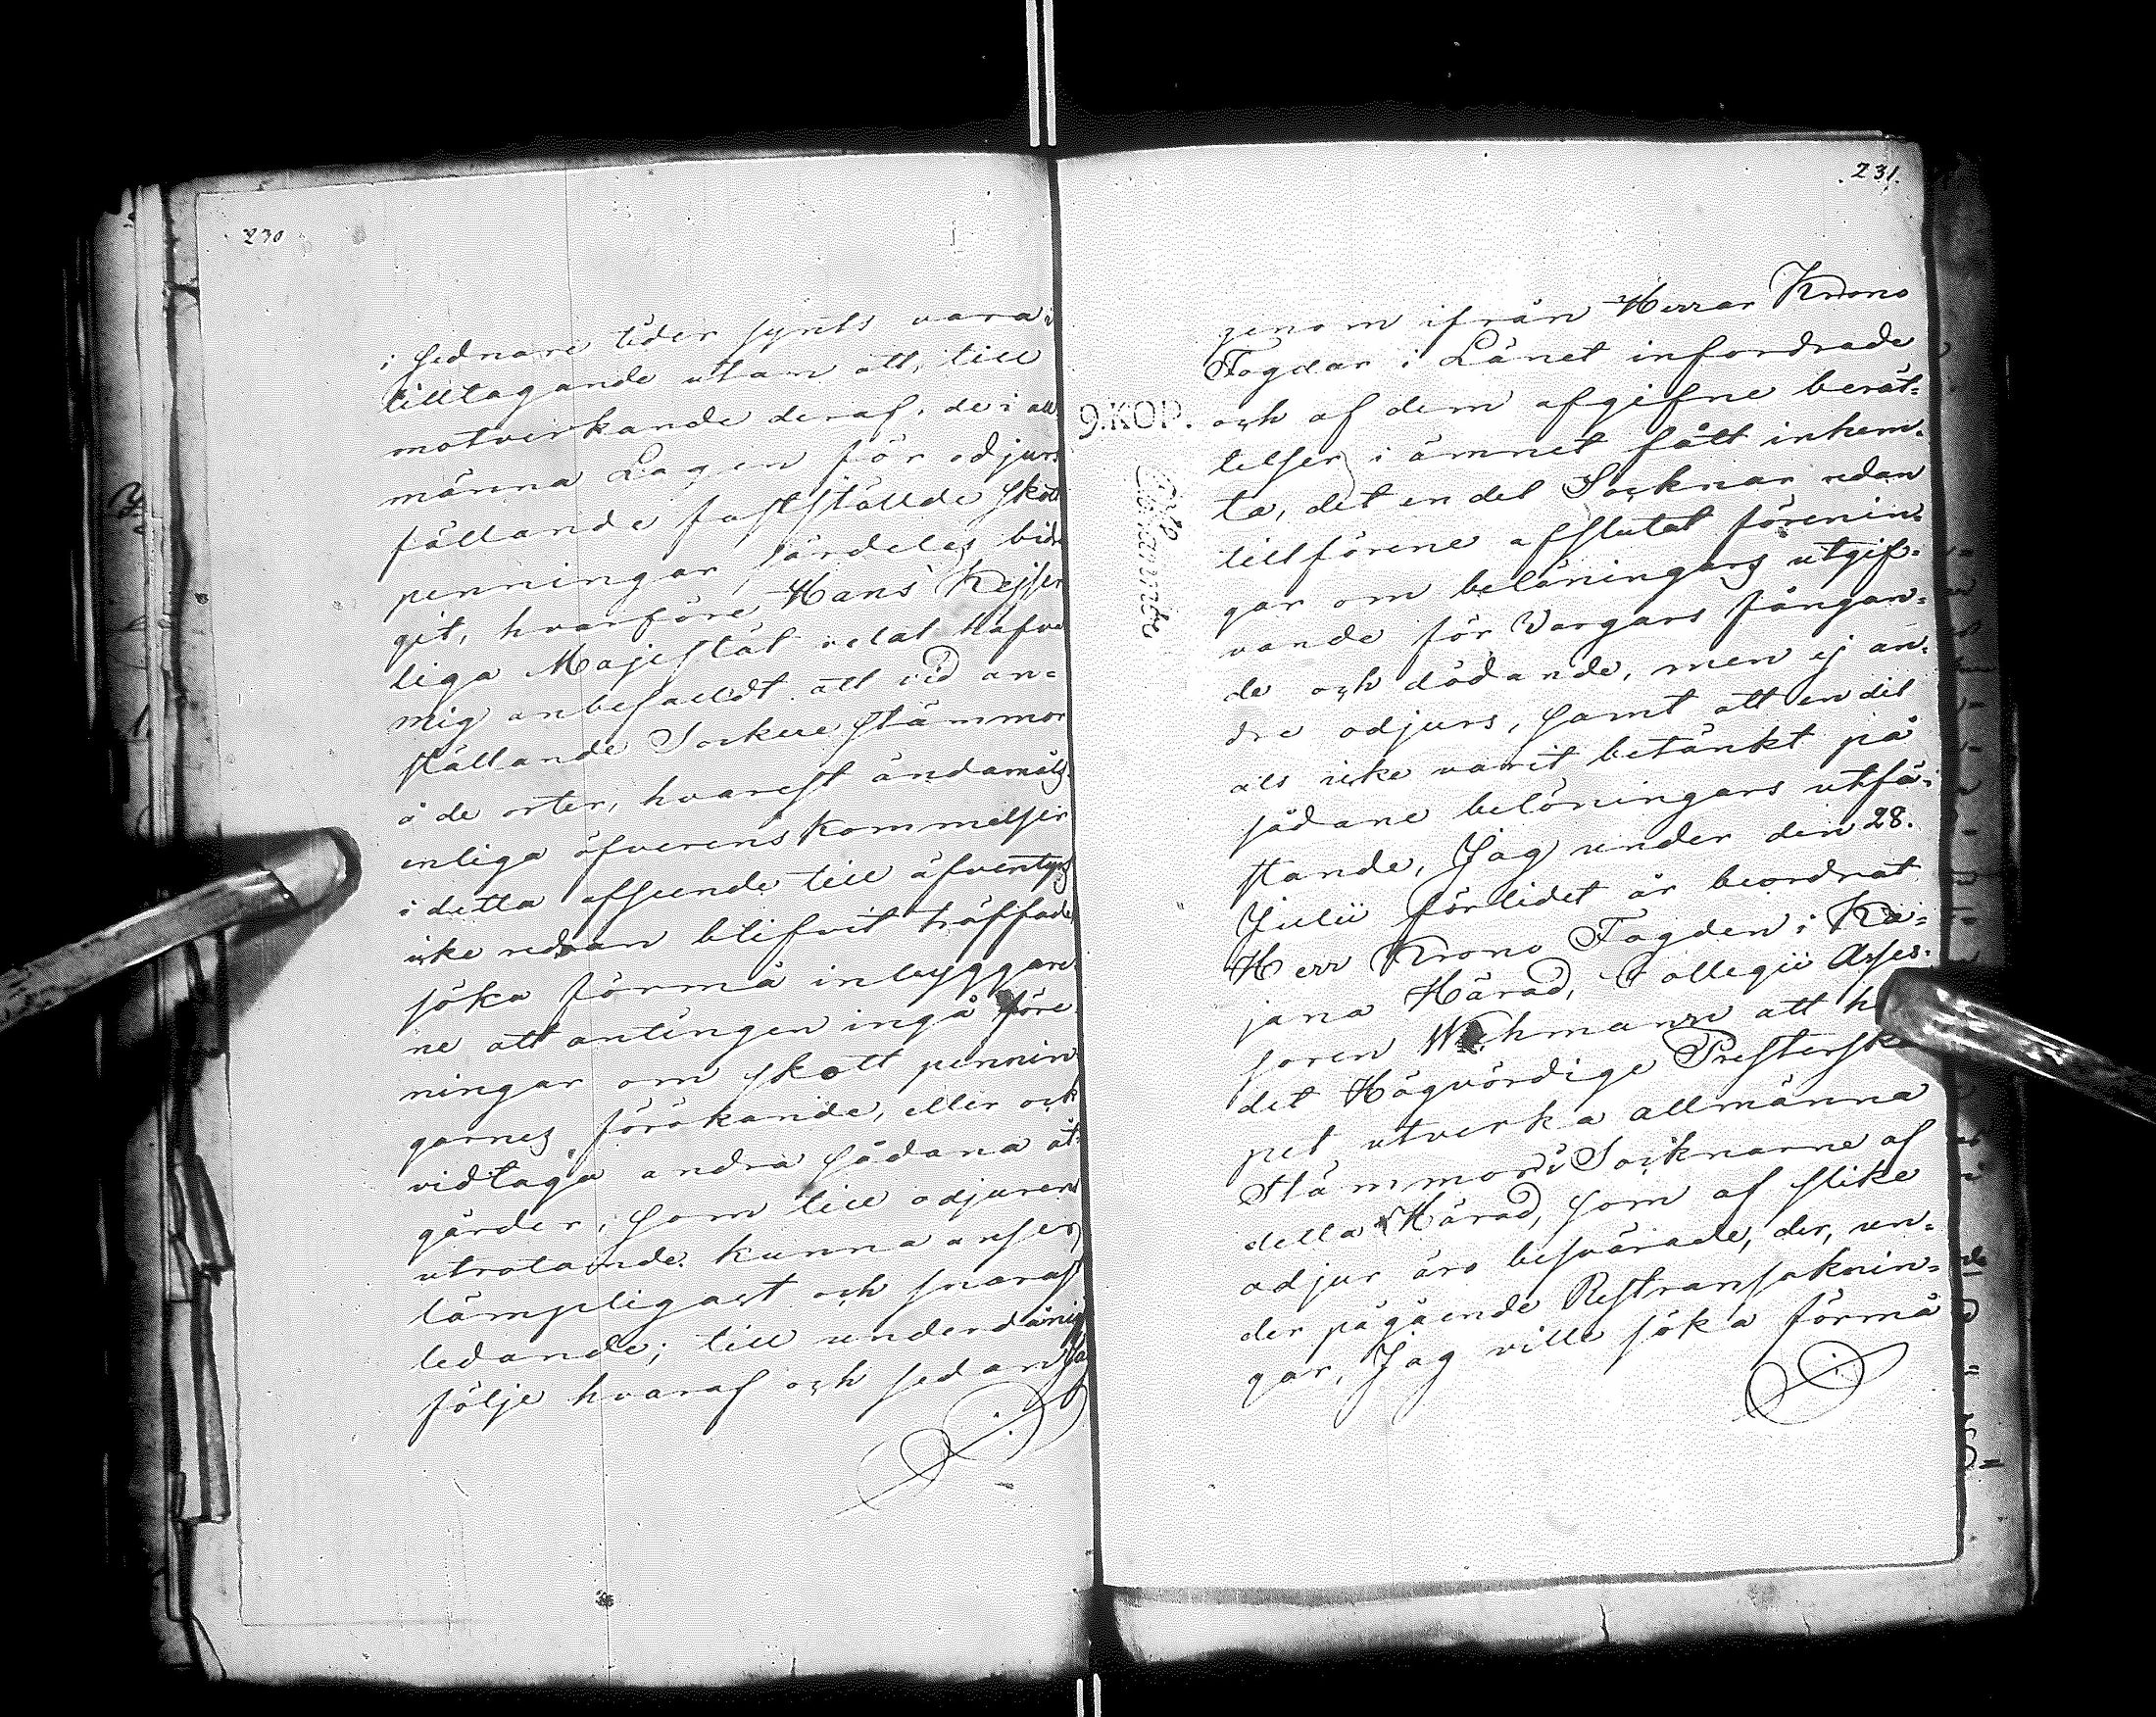 230
i sednare tider synts vara i
tilltagande utan att, till
motverkande deraf, de i all
männa Lagen för odjurs
fällande fastställde skott
penningar särdeles bidra
git, hvarföre Hans Kejser
liga Majestät velat hafva
mig anbefalldt att vid an=
ställande Sockne stämmor
å de orter, hvarest ändamåls
enliga öfverenskommelser
i detta afseende till äfventyrs
icke redan blifvit träffade
söka förmå inbyggare
ne att antingen ingå före
ningar om skott pennin
garnes förökande, eller ock
vidtaga andra sådana åt
gärder, som till odjurens
utrotande kunna anses
lämpligast och snarast
ledande; till underdånig
följe hvaraf och sedan ja
231.
genom ifrån Herrar Krono
Fogdar i Länet infordrade
9.KOP. och af dem afgifne berät=
telser i ämnet fått inhem=
ta, det en del Socknar redan
tillförene afslutat förenin=
gar om belöningars utgif=
vande för Vargars fångan=
de och dödande, men ej an=
dre odjurs, samt att en del
als icke varit betänkt på
sådane belöningars utfä=
stande, Jag under den 28.
Julii förlidet år beordrat
Herr Krono Fogden i Ka=
jana Härad, Collegii Asses=
soren Wichmann att h
det Högvördige Prestersk
pet utverka allmänna
Stämmor i Socknarne af
detta Härad, som af slike
odjur äro besvärade, der, un=
der pågående Restransaknin=
gar, Jag ville söka förmå